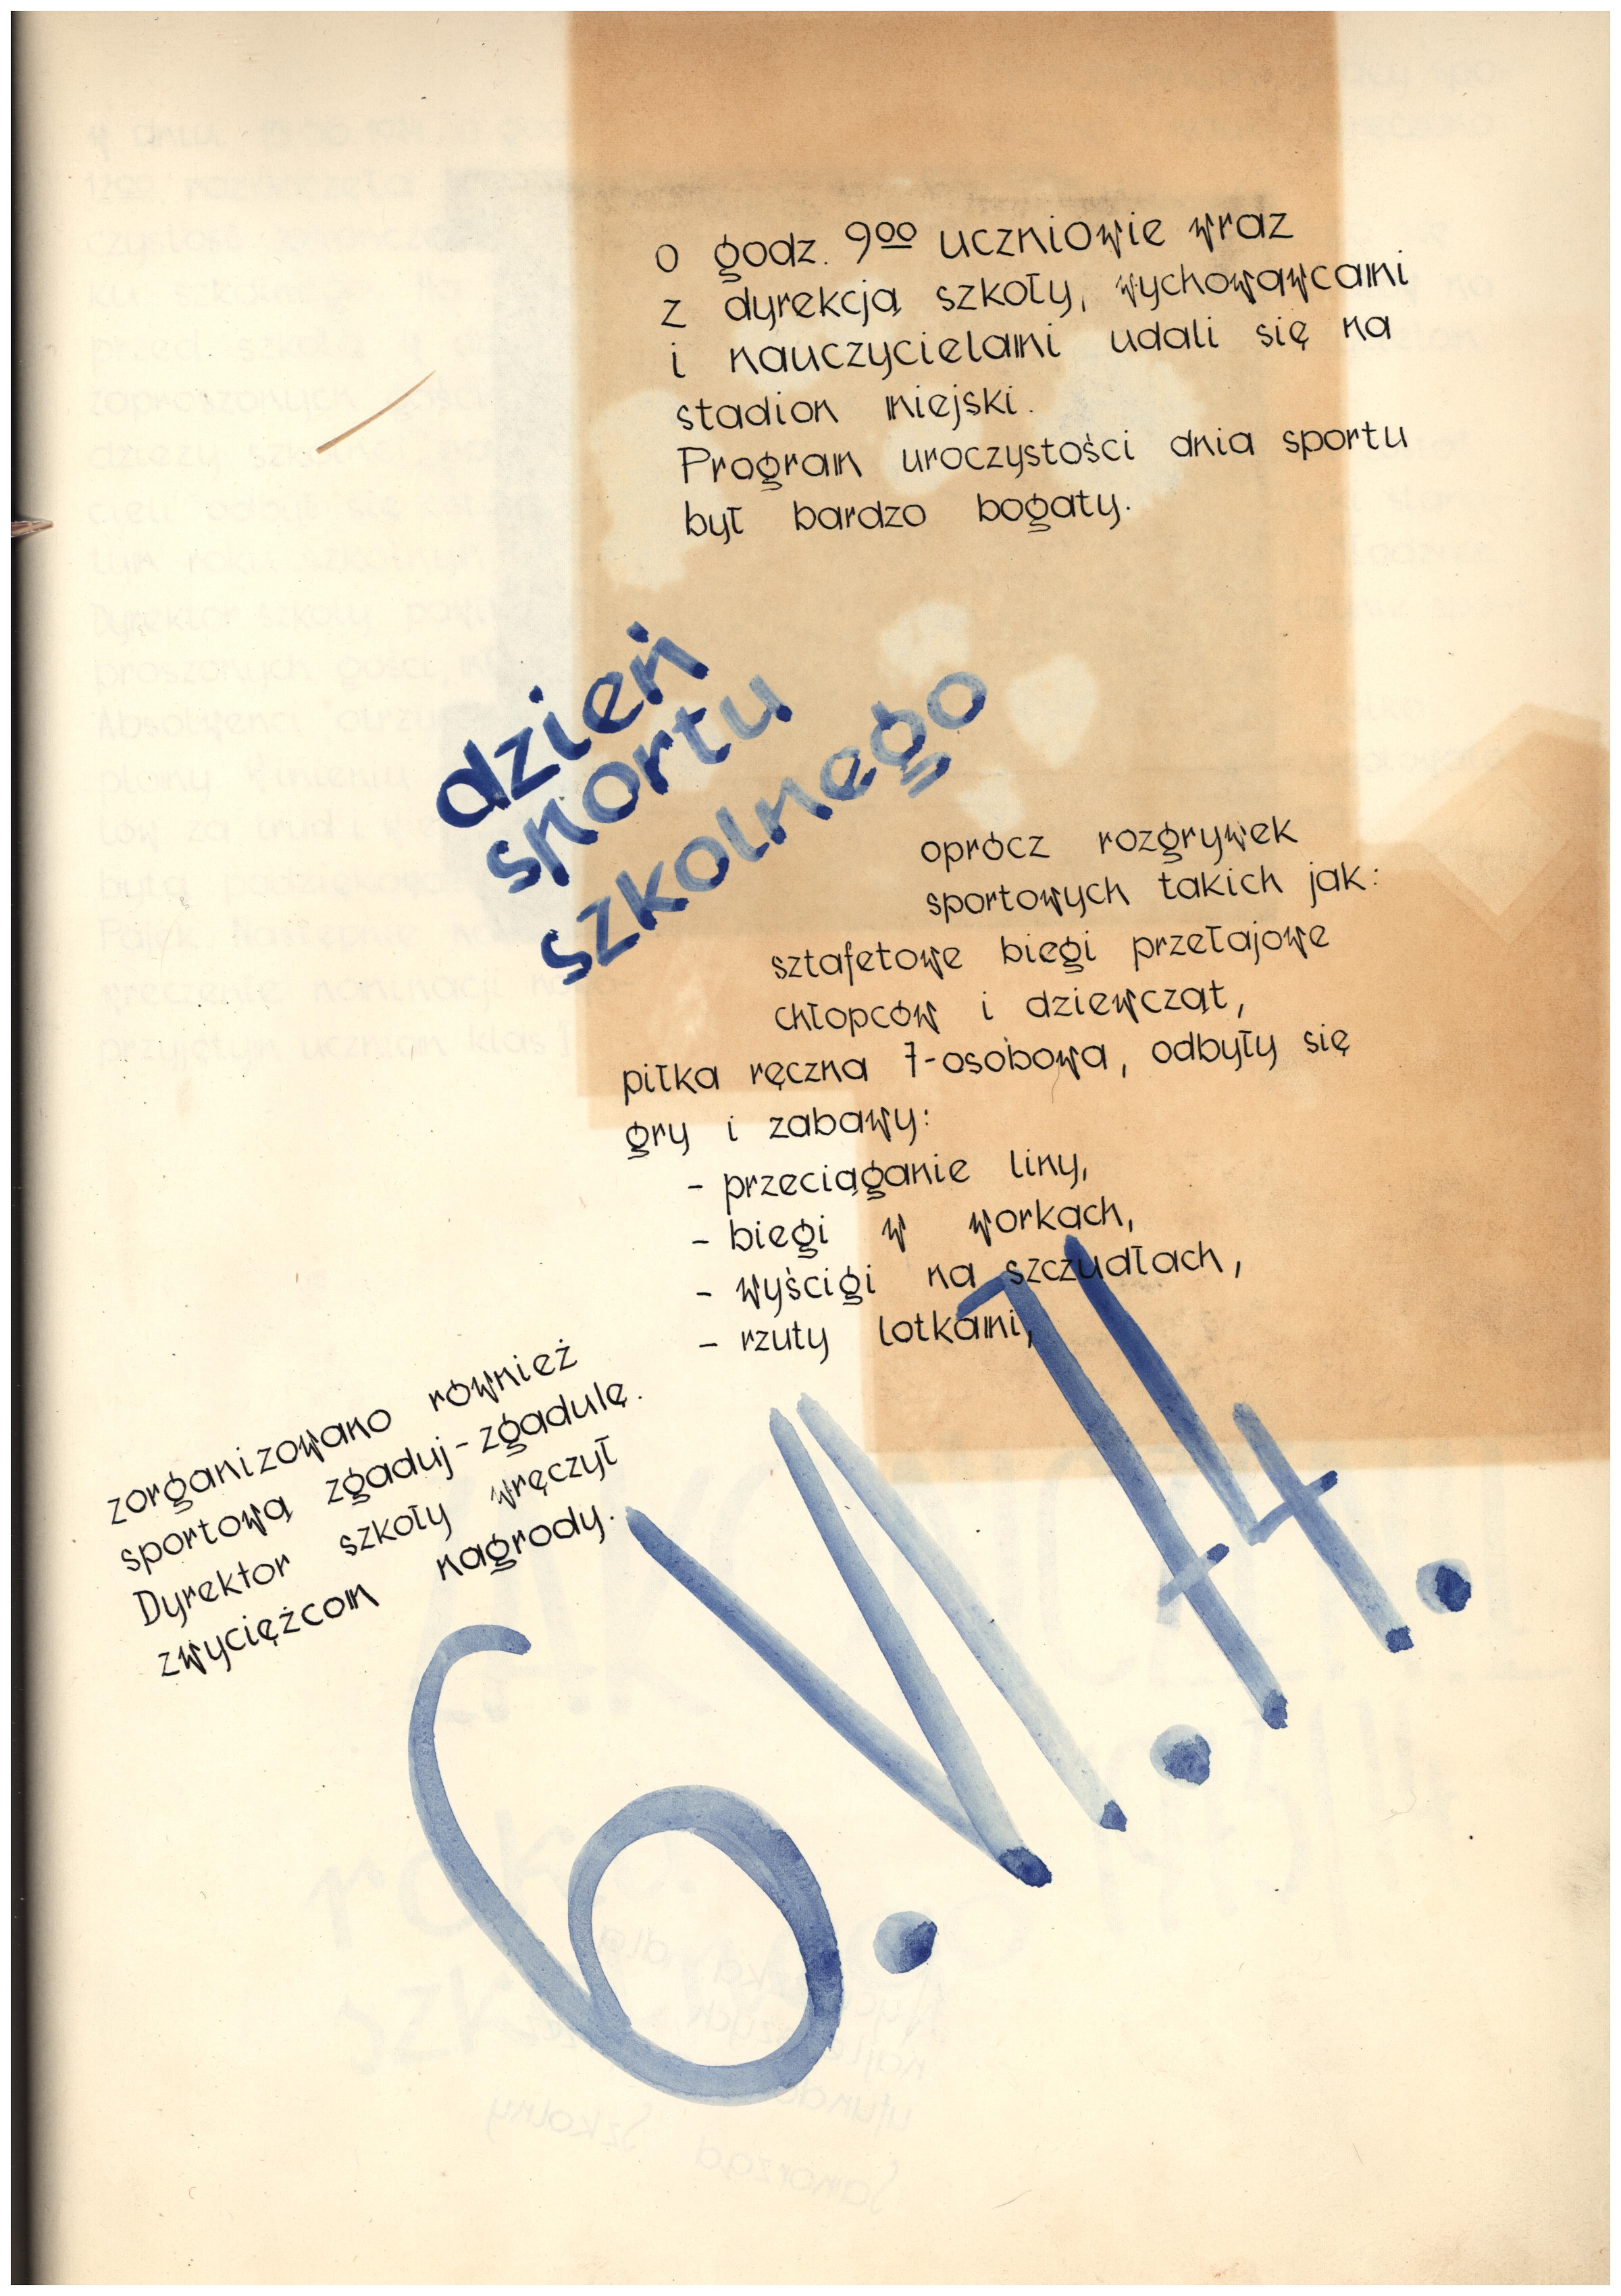 o godz. 9⁰⁰ uczniowie wraz
z dyrekcją szkoły, wychowawcami
i nauczycielami udali się na
stadion miejski.
Program uroczystości dnia sportu
był bardzo bogaty.
dzień
sportu
szkolnego
oprócz rozgrywek
sportowych takich jak:
sztafetowe biegi przełajowe
chłopców i dziewcząt,
piłka ręczna 7-osobowa, odbyły się
gry i zabawy:
- przeciąganie liny,
- biegi w workach,
- wyścigi na szczudłach,
- rzuty lotkami,
zorganizowano również
sportową zgaduj-zgadulę.
Dyrektor szkoły wręczył
zwyciężcom nagrody.
6.VI.74.